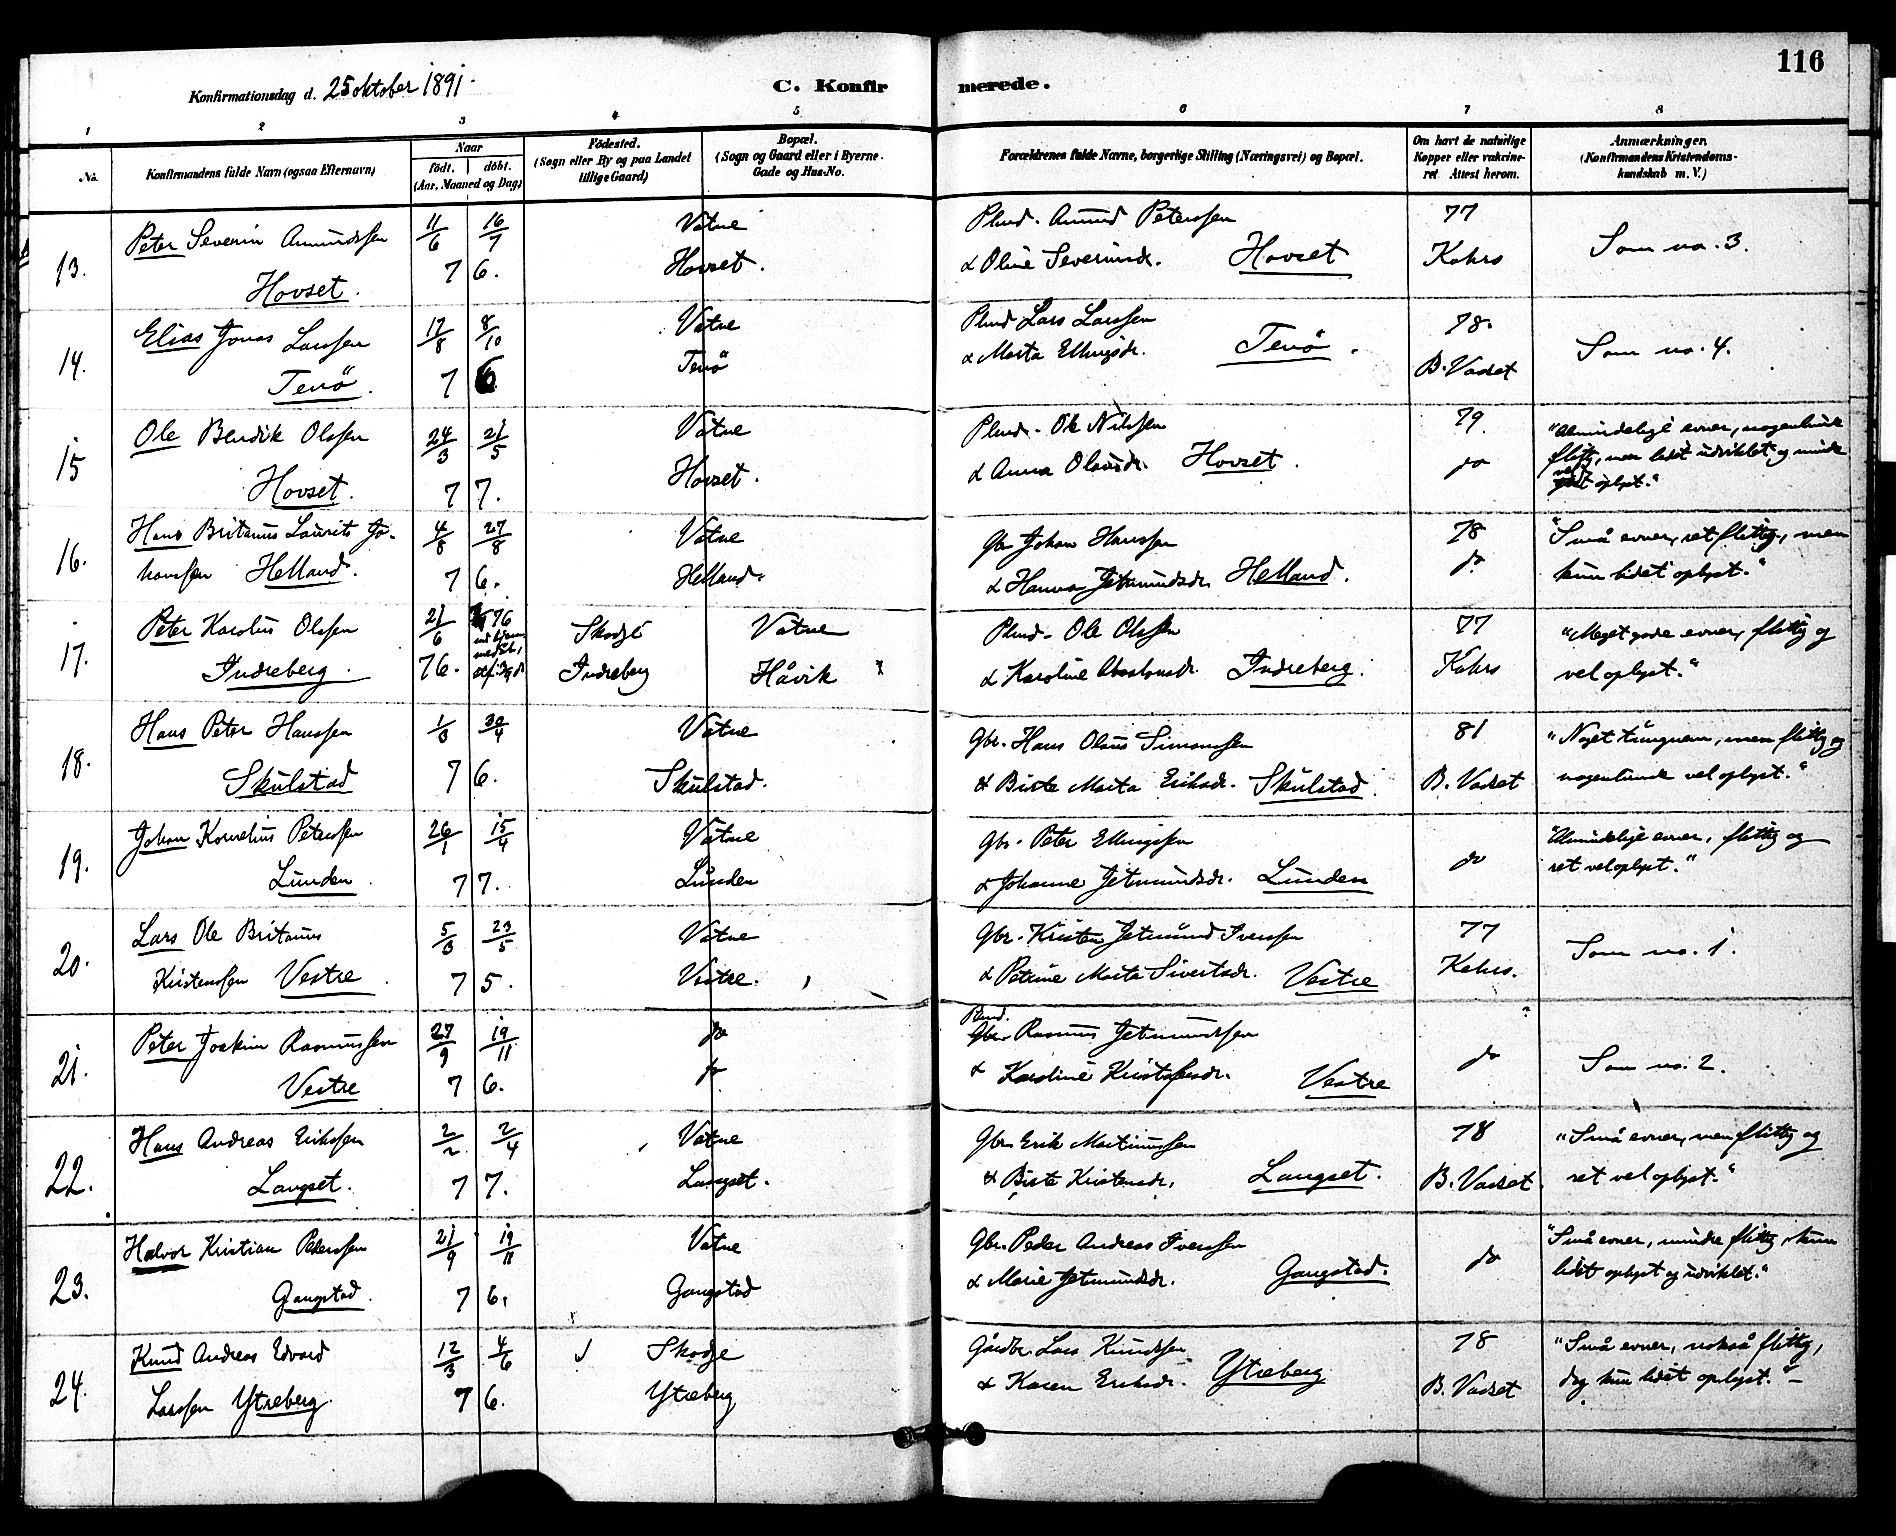 116
Konfirmationsdag d. 25 oktober 1891.
C. Konfirmerede.
1 2 3 4 5 6 7 8
No.
Konfirmandens fulde Navn (ogsaa Efternavn)
Naar
født. døbt.
(Aar, Maaned og Dag)
Fødested.
(Sogn eller By og paa Landet
tillige Gaard)
Bopæl.
(Sogn og Gaard eller i Byerne
Gade og Hus-No.
Forældrenes fulde Navne, borgerlige Stilling (Næringsvei) og Bopæl.
Om havt de naturlige
Kopper eller vakcine-
ret Attest herom.
Anmærkninger.
(Konfirmandens Kristendoms-
kundskab m. V.)
13. Peter Severin Amundssen 11/6 16/7 Vatne Plmd. Amund Peterssen 77 Som no. 3.
Hovset. 7 6. Hovset. & Oline Severinsd. Hovset Kahrs
14. Elias Jonas Larssen 17/8 8/10 Vatne Plmd Lars Larssen 78. Som no. 4.
Tenø. 7 6 Tenø & Marta Ellingsdr. Tenø. B. Vadset
15 Ole Bendik Olssen 24/3 21/5 Vatne Plmd. Ole Nilssen 79. "Almindelige evner, nogenlunde
Hovset. 7 7. Hovset. & Anna Olausdr. Hovset. do flittig, men lidet udviklet og mindre
vel oplyst."
16. Hans Britanus Laurits Jo- 4/8 27/8 Vatne Gbr Johan Hanssen 78 "Små evner, ret flittig, men
hanssen Helland. 7 6. Helland. & Hanna Jetmundsdr. Helland. do kun lidet oplyst."
17. Peter Karolus Olssen 21/6 76 Skodje Vatne Plmd. Ole Olssen 77 "Meget gode evner, flittig og
Indreberg. 76. Indreberg Håvik & Karoline Absalonsdr. Indreberg. Kahrs vel oplyst."
18. Hans Peter Hanssen 1/3 30/4 Vatne Gbr. Hans Olaus Simonssen 81 "Noget tungnem, men flittig og
Skulstad 7 6. Skulstad. & Birte Marta Eriksdr. Skulstad. B. Vadset nogenlunde vel oplyst."
19. Johan Kornelius Peterssen 26/1 15/4 Vatne Gbr. Peter Ellingssen do "Almindelige evner, flittig og
Lunden. 7 7. Lunden & Johanne Jetmundsdr. Lunden ret vel oplyst."
20. Lars Ole Britanus 5/3 23/5 Vatne Gbr. Kristen Jetmund Iverssen 77 Som no. 1.
Kristenssen Vestre. 7 5. Vestre. & Petrine Marta Sivertsdr. Vestre Kahrs.
21. Peter Joakim Rasmussen 27/9 19/11 do Plmd. Rasmus Jetmundssen do Som no. 2.
Vestre 7 6. do & Karoline Kristofersdr. Vestre
22. Hans Andreas Erikssen 2/2 2/4 Vatne Gbr. Erik Martinussen 78 "Små evner, men flittig og
Langset. 7 7. Langset. & Birte Kristensdr. Langset. B. Vadset. ret vel oplyst."
23. Halvor Kristian Pederssen 21/9 19/11 Vatne Gbr. Peder Andreas Iverssen do "Små evner, mindre flittig, kun
Gangstad. 7 6. Gangstad & Marie Jetmundsdr. Gangstad. lidet oplyst og udviklet."
24. Knud Andreas Edvard 12/3 4/6 Skodje Gårdbr Lars Knudssen 78 "Små evner, nokså flittig,
Larssen Ytreberg. 7 6. Ytreberg & Karen Eriksdr. Ytreberg B. Vadset dog kun lidet oplyst."